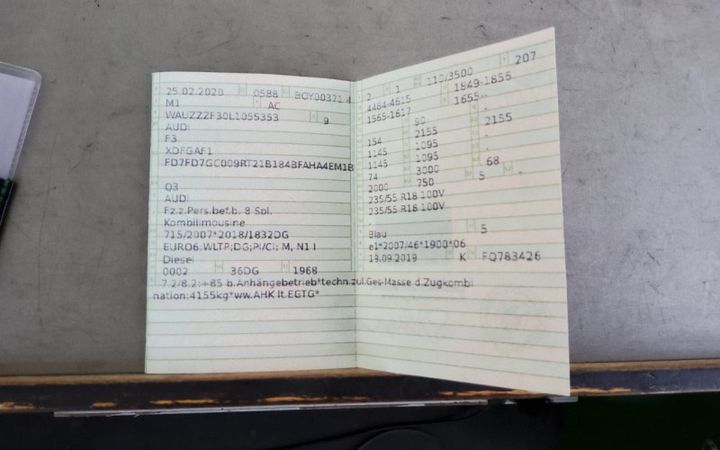 25.02.2020 0588 BOY00321 4
M1 AC
WAUZZZF30L1055353 9
AUDI
F3
XDFGAF1
FD7FD7GC009RT21B184BFAHA4EM1B
Q3
AUDI
Fz.z.Pers.bef.b. 8 Spl.
Kombilimousine
715/2007*2018/1832DG
EURO6 WLTP;DG;PI/CI; M, N1 I
Diesel
0002 36DG 1968
7.2/8.2:+85 b.Anhängebetrieb*techn.zul.Ges-Masse d.Zugkombi
nation:4155kg*ww.AHK lt.EGTG*
2 1 110/3500 207
4484-4615 1849-1855
1565-1617 1655-
90
154 2155 2155
1145 1095 -
1145 1095
74 3000 68
2000 750 5 -
235/55 R18 100V
235/55 R18 100V
Blau 5
e1*2007/46*1900*06
19.09.2019 K FQ783426